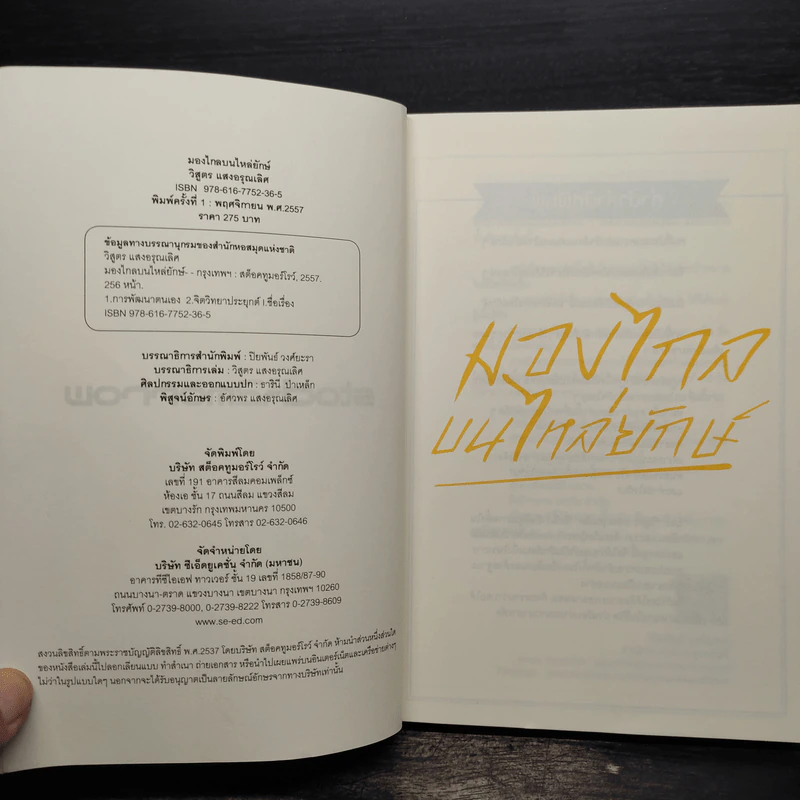 มองไกลบนไหล่ยักษ์
วิสูตร แสงอรุณเลิศ
ISBN 978-616-7752-36-5
พิมพ์ครั้งที่ 1 : พฤศจิกายน พ.ศ.2557
ราคา 275 บาท
ข้อมูลทางบรรณานุกรมของสำนักหอสมุดแห่งชาติ
วิสูตร แสงอรุณเลิศ
มองไกลบนไหล่ยักษ์- - กรุงเทพฯ : สต็อคทูมอร์โรว์, 2557.
256 หน้า.
1.การพัฒนาตนเอง 2.จิตวิทยาประยุกต์ I.ชื่อเรื่อง
ISBN 978-616-7752-36-5
บรรณาธิการสำนักพิมพ์ : ปิยพันธ์ วงศ์ยะรา
บรรณาธิการเล่ม : วิสูตร แสงอรุณเลิศ
ศิลปกรรมและออกแบบปก : อารินี ป่าเหล็ก
พิสูจน์อักษร : อัศวพร แสงอรุณเลิศ
จัดพิมพ์โดย
บริษัท สต็อคทูมอร์โรว์ จำกัด
เลขที่ 191 อาคารสีลมคอมเพล็กซ์
ห้องเอ ชั้น 17 ถนนสีลม แขวงสีลม
เขตบางรัก กรุงเทพมหานคร 10500
โทร. 02-632-0645 โทรสาร 02-632-0646
จัดจำหน่ายโดย
บริษัท ซีเอ็ดยูเคชั่น จำกัด (มหาชน)
อาคารทีซีไอเอฟ ทาวเวอร์ ชั้น 19 เลขที่ 1858/87-90
ถนนบางนา-ตราด แขวงบางนา เขตบางนา กรุงเทพฯ 10260
โทรศัพท์ 0-2739-8000, 0-2739-8222 โทรสาร 0-2739-8609
www.se-ed.com
สงวนลิขสิทธิ์ตามพระราชบัญญัติลิขสิทธิ์ พ.ศ.2537 โดยบริษัท สต็อคทูมอร์โรว์ จำกัด ห้ามนำส่วนหนึ่งส่วนใด
ของหนังสือเล่มนี้ไปลอกเลียนแบบ ทำสำเนา ถ่ายเอกสาร หรือนำไปเผยแพร่บนอินเตอร์เน็ตและเครือข่ายต่างๆ
ไม่ว่าในรูปแบบใดๆ นอกจากจะได้รับอนุญาตเป็นลายลักษณ์อักษรจากทางบริษัทเท่านั้น
มองไกล
บนไหล่ยักษ์